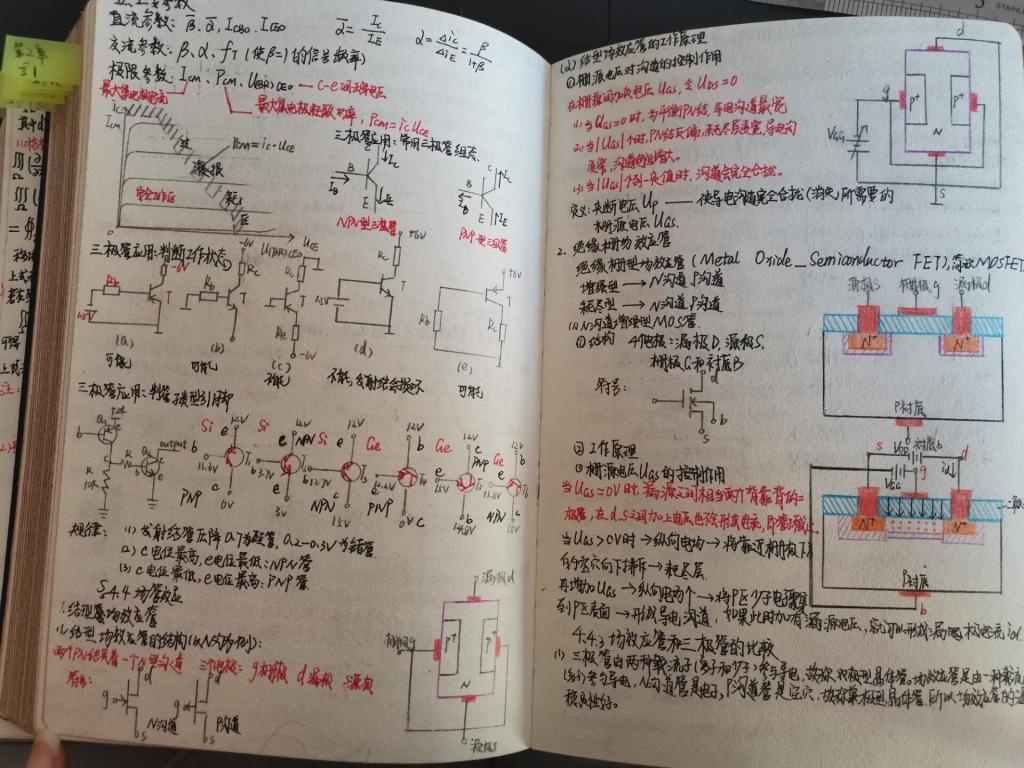 直流参数: β̄, ᾱ, ICBO, ICEO ᾱ = IC/IE α = ΔiC/ΔiE = β/(1+β)
交流参数: β, α, fT (使β=1的信号频率)
极限参数: ICM、PCM、U(BR)CEO
最大集电极电流
最大集电极耗散功率, PCM = iC UCE
iC
ICM
PCM = iC·UCE
过
损
耗
区
安全工作区
U(BR)CEO
UCE
三极管应用: 常用三极管组态
IB
B
C
E
IC
IE
NPN型三极管
PNP型三极管
三极管应用: 判断工作状态
-6V
Rb
Rc
T
1.5V
(a)
可能
-6V
Rb
Rc
T
(b)
可能
Rc
T
Re
-6V
(c)
不能
+6V
Rc
T
1.5V
(d)
不能, 发射结会损坏
+6V
T
Rb
Rc
(e)
可能
三极管应用: 判管子类型引用脚
output
10K
12V
Si
e
b
11.3V
T1
c
0V
PNP
12V
Si
e
3.7V
3V
NPN
12V
Si
b 12.7V
NPN
15V
12V
Ge
b
PNP
0V
12V
Ge
b
e
PNP
12V
Ge
11.8V
NPN
15V
规律: (1) 发射结管压降0.7为硅管, 0.2-0.3V为锗管
(2) c电位最高, e电位最低: NPN管
(3) c电位最低, e电位最高: PNP管
§4.4 场管效应
1. 结型场效应管
(1) 结型场效应管的结构(以N沟为例):
两个PN结夹着一个N型沟道 三个电极: g栅极 d漏极 s源极
符号:
d
g
s
N沟道
d
g
s
P沟道
漏极d
栅极g
P+
P+
N
源极s
(2) 结型场效应管的工作原理
①栅源电压对沟道的控制作用
在栅源间加负电压UGS, 令UDS=0
1) 当UGS=0时, 为平衡PN结, 导电沟道最宽
2) 当|UGS|↑时, PN结反偏, 耗尽层变宽, 导电沟
道变窄, 沟道电阻增大。
3) 当|UGS|↑到一定值时, 沟道会完全合拢。
定义: 夹断电压UP —— 使导电沟道完全合拢(消失)所需要的
栅源电压UGS.
d
g
P+
P+
N
VGG
s
2. 绝缘栅场效应管
绝缘栅型场效应管 (Metal Oxide_Semiconductor FET), 简称MOSFET
增强型 → N沟道 P沟道
耗尽型 → N沟道 P沟道
(1) N沟道增强型MOS管
①结构 4个电极: 漏极D, 源极S,
栅极G和衬底B
符号:
d
g
b
s
源极s
栅极g
漏极d
N+
N+
P衬底
衬底b
②工作原理
①栅源电压UGS的控制作用
当UGS=0V时, 漏源之间相当两个背靠背的二
极管, 在d.s之间加上电压也不会形成电流, 即管子截止.
当UGS>0V时→纵向电场→将靠近栅极下方
的空穴向下排斥→耗尽层.
再增加UGS→纵向电场↑→将P区少子电子聚集
到P区表面→形成导电沟道, 如果此时加有漏源电压, 就可以形成漏极电流id.
VDD
VGG
s
g
d
id
N+
N+
P衬底
b
4.4.3 场效应管和三极管的比较
(1) 三极管由两种载流子(多子和少子)参与导电, 故称双极型晶体管, 场效应管是由一种载流
(多子)参与导电, N沟道管是电子, P沟道管是空穴, 故称单极型晶体管, 所以场效应管的温
稳定性好.
第2章